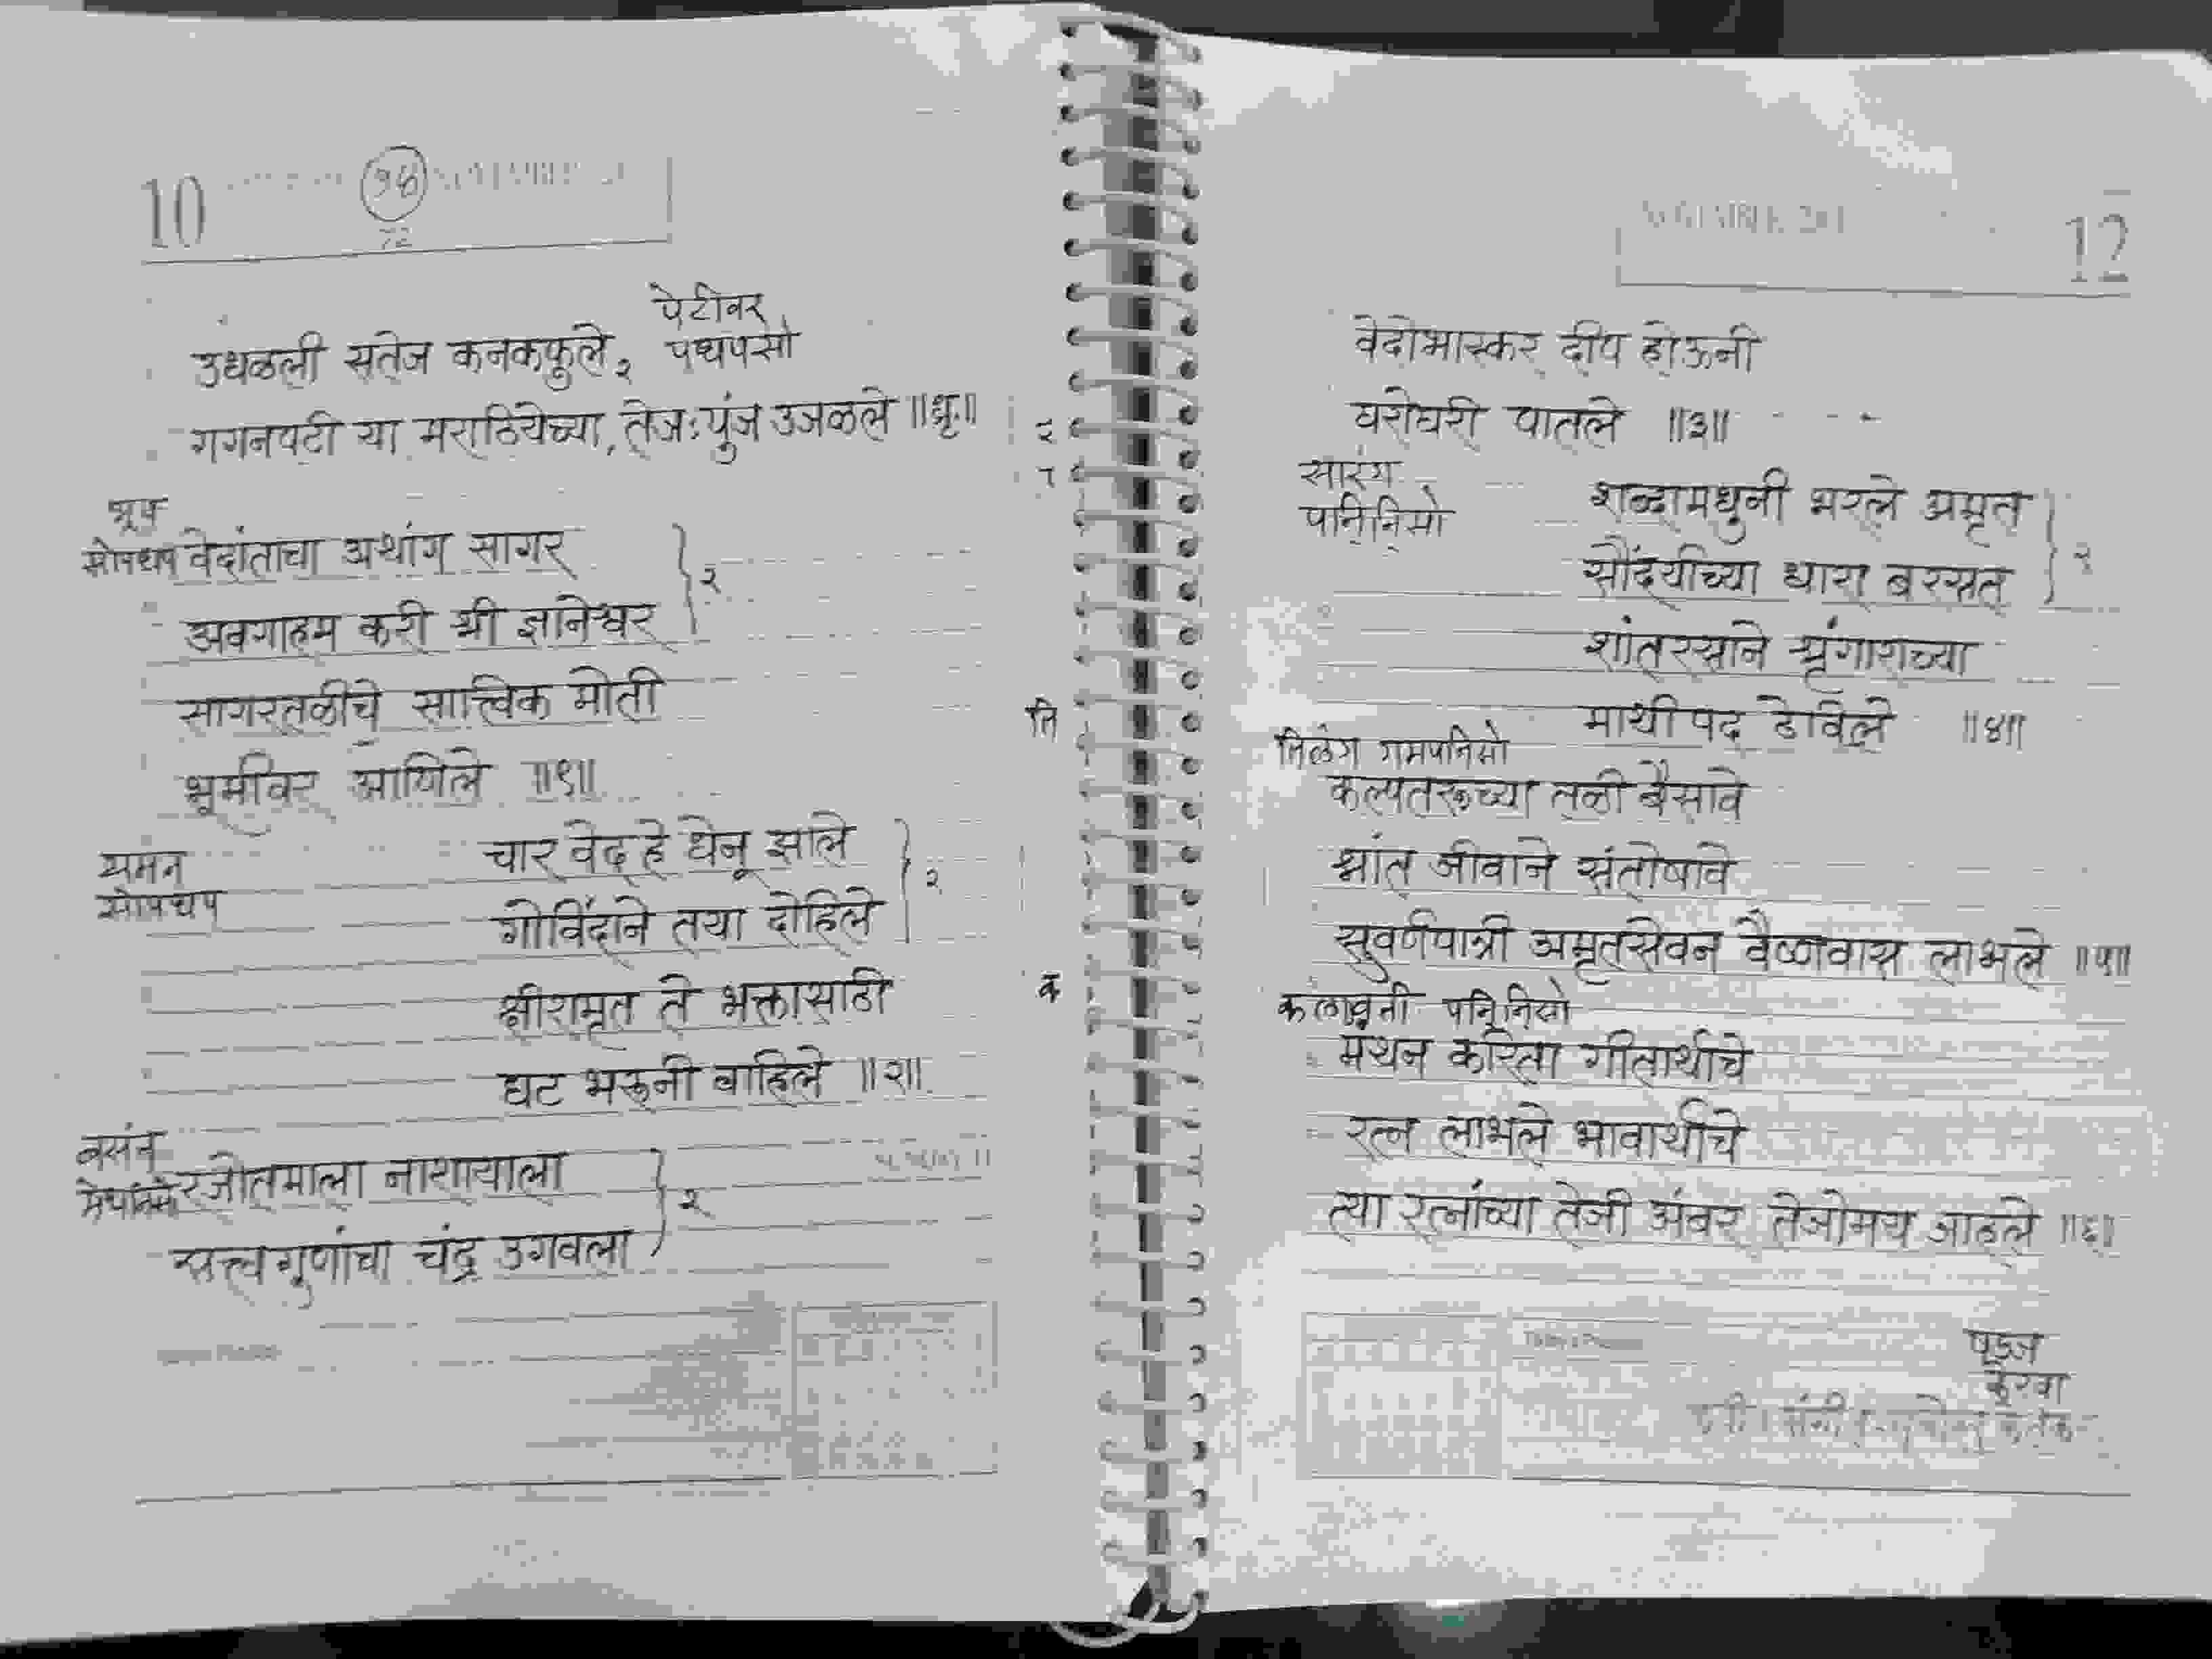 10
12
पेटीवर
उधळली सतेज कनकफूले, २ पधपसो
गगनपटी या मराठियेच्या, तेजःपुंज उजळले ॥धृ.॥
भूप
सोपधप वेदांताचा अथांग सागर
अवगाहम करी श्री ज्ञानेश्वर } २
सागरतळीचे सात्त्विक मोती
भूमीवर आणिले ॥१॥
यमन
सोपधप
चार वेद हे धेनू झाले
गोविंदाने तया दोहिले } २
क्षीरामृत ते भक्तासाठी
घट भरूनी वाहिले ॥२॥
वसंत
रजोतमाला नाशायाला
सत्त्वगुणांचा चंद्र उगवला } २
वेदोभास्कर दीप होऊनी
घरोघरी पातले ॥३॥
सारंग
पनि़नि़सो
शब्दामधुनी भरले अमृत
सौंदर्याच्या धारा बरसत } २
शांतरसाने श्रृंगाराच्या
माथी पद ठेविले ॥४॥
तिळंग गमपनिसो
कल्पतरूच्या तळी बैसावे
श्रांत जीवाने संतोषावे
सुवर्णपात्री अमृतसेवन वैष्णवास लाभले ॥५॥
कलावती पनि़नि़सो
मंथन करिता गीतार्थाचे
रत्न लाभले भावार्थाचे
त्या रत्नांच्या तेजी अंबर तेजोमय जाहले ॥६॥
केरवा